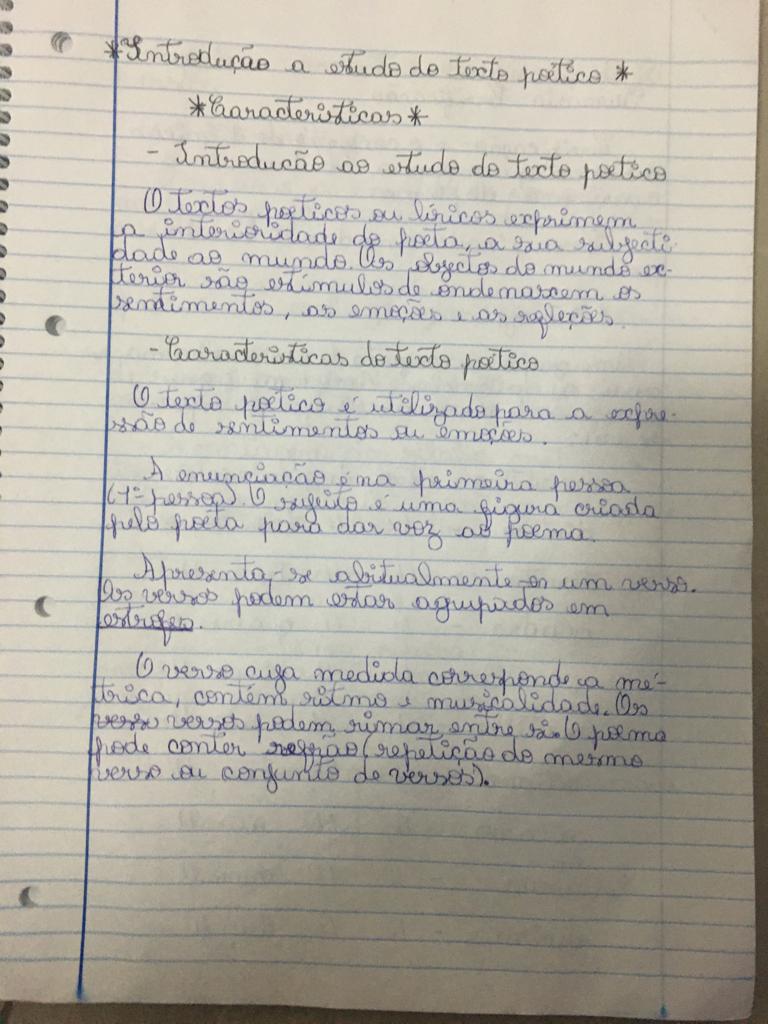 *Introdução a estudo do texto poético *
*Caracteristicas*
- Introducão ao estudo do texto poético
O textos poéticos ou líricos exprimem
a interioridade do poeta, a sua subjecti-
dade ao mundo. Os objectos do mundo ex-
terior são estímulos de onde nascem os
sentimentos, as emoções e as refleções.
- Caracteristicas do texto poético
O texto poético é utilizado para a expre-
ssão de sentimentos ou emoções.
A enunciação é na primeira pessoa
(1ª pessoa). O sujeito é uma figura criada
pelo poeta para dar voz ao poema.
Apresenta-se abitualmente um verso.
Os versos podem estar agupados em
estrofes.
O verso cuja medida corresponde a mé-
trica, contém ritmo e musicalidade. Os
versos podem rimar entre si. O poema
pode conter refrão (repetição do mesmo
verso ou conjunto de versos).